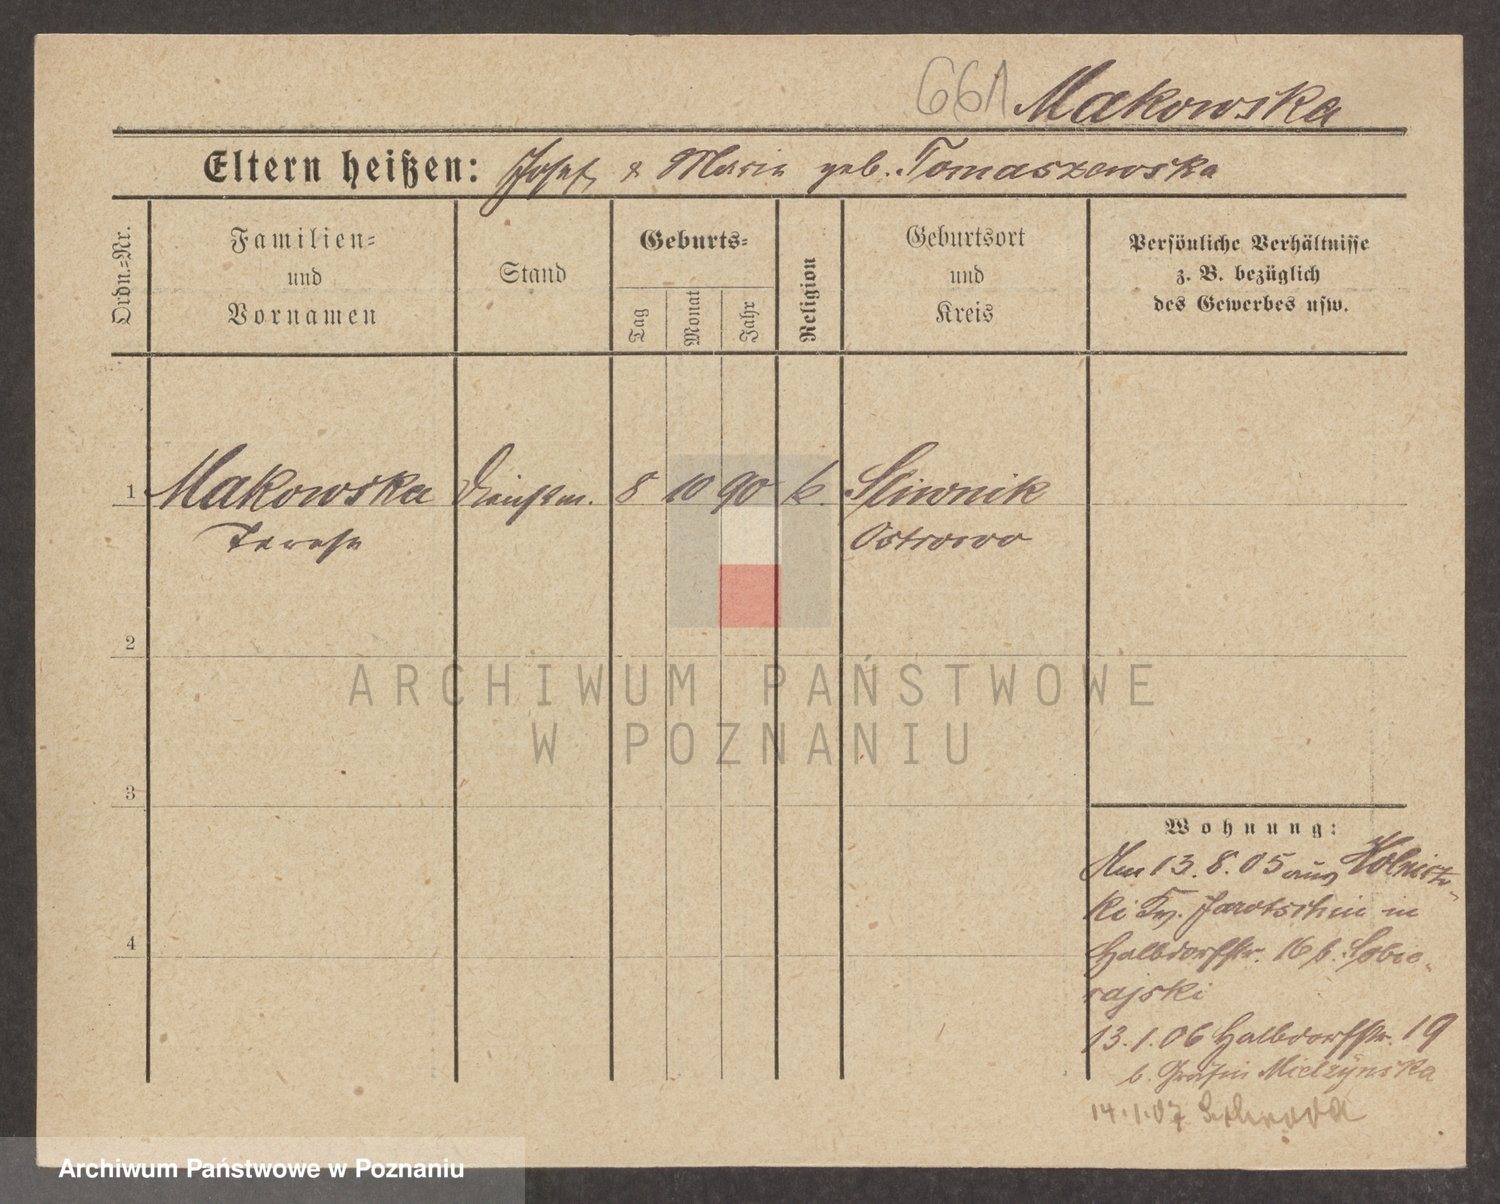 661 Makowska
Eltern heißen: Josef & Maria geb. Tomaszewska
Ordn.=Nr.
Familien=
und
Vornamen
Stand
Geburts=
Tag
Monat
Jahr
Religion
Geburtsort
und
Kreis
Persönliche Verhältnisse
z. B. bezüglich
des Gewerbes usw.
1 Makowska Dienstm. 8 10 90 k. Sliwnik
Terese Ostrowo
2
3
4
Wohnung:
Am 13.8.05 aus
Jarotschin in
Halbdorfstr. 16 b. Sobie-
rajski
13.1.06 Halbdorfstr. 19
b. Gräfin Mielzynska
14.1.07 Schroda
ARCHIWUM PAŃSTWOWE
W POZNANIU
Archiwum Państwowe w Poznaniu